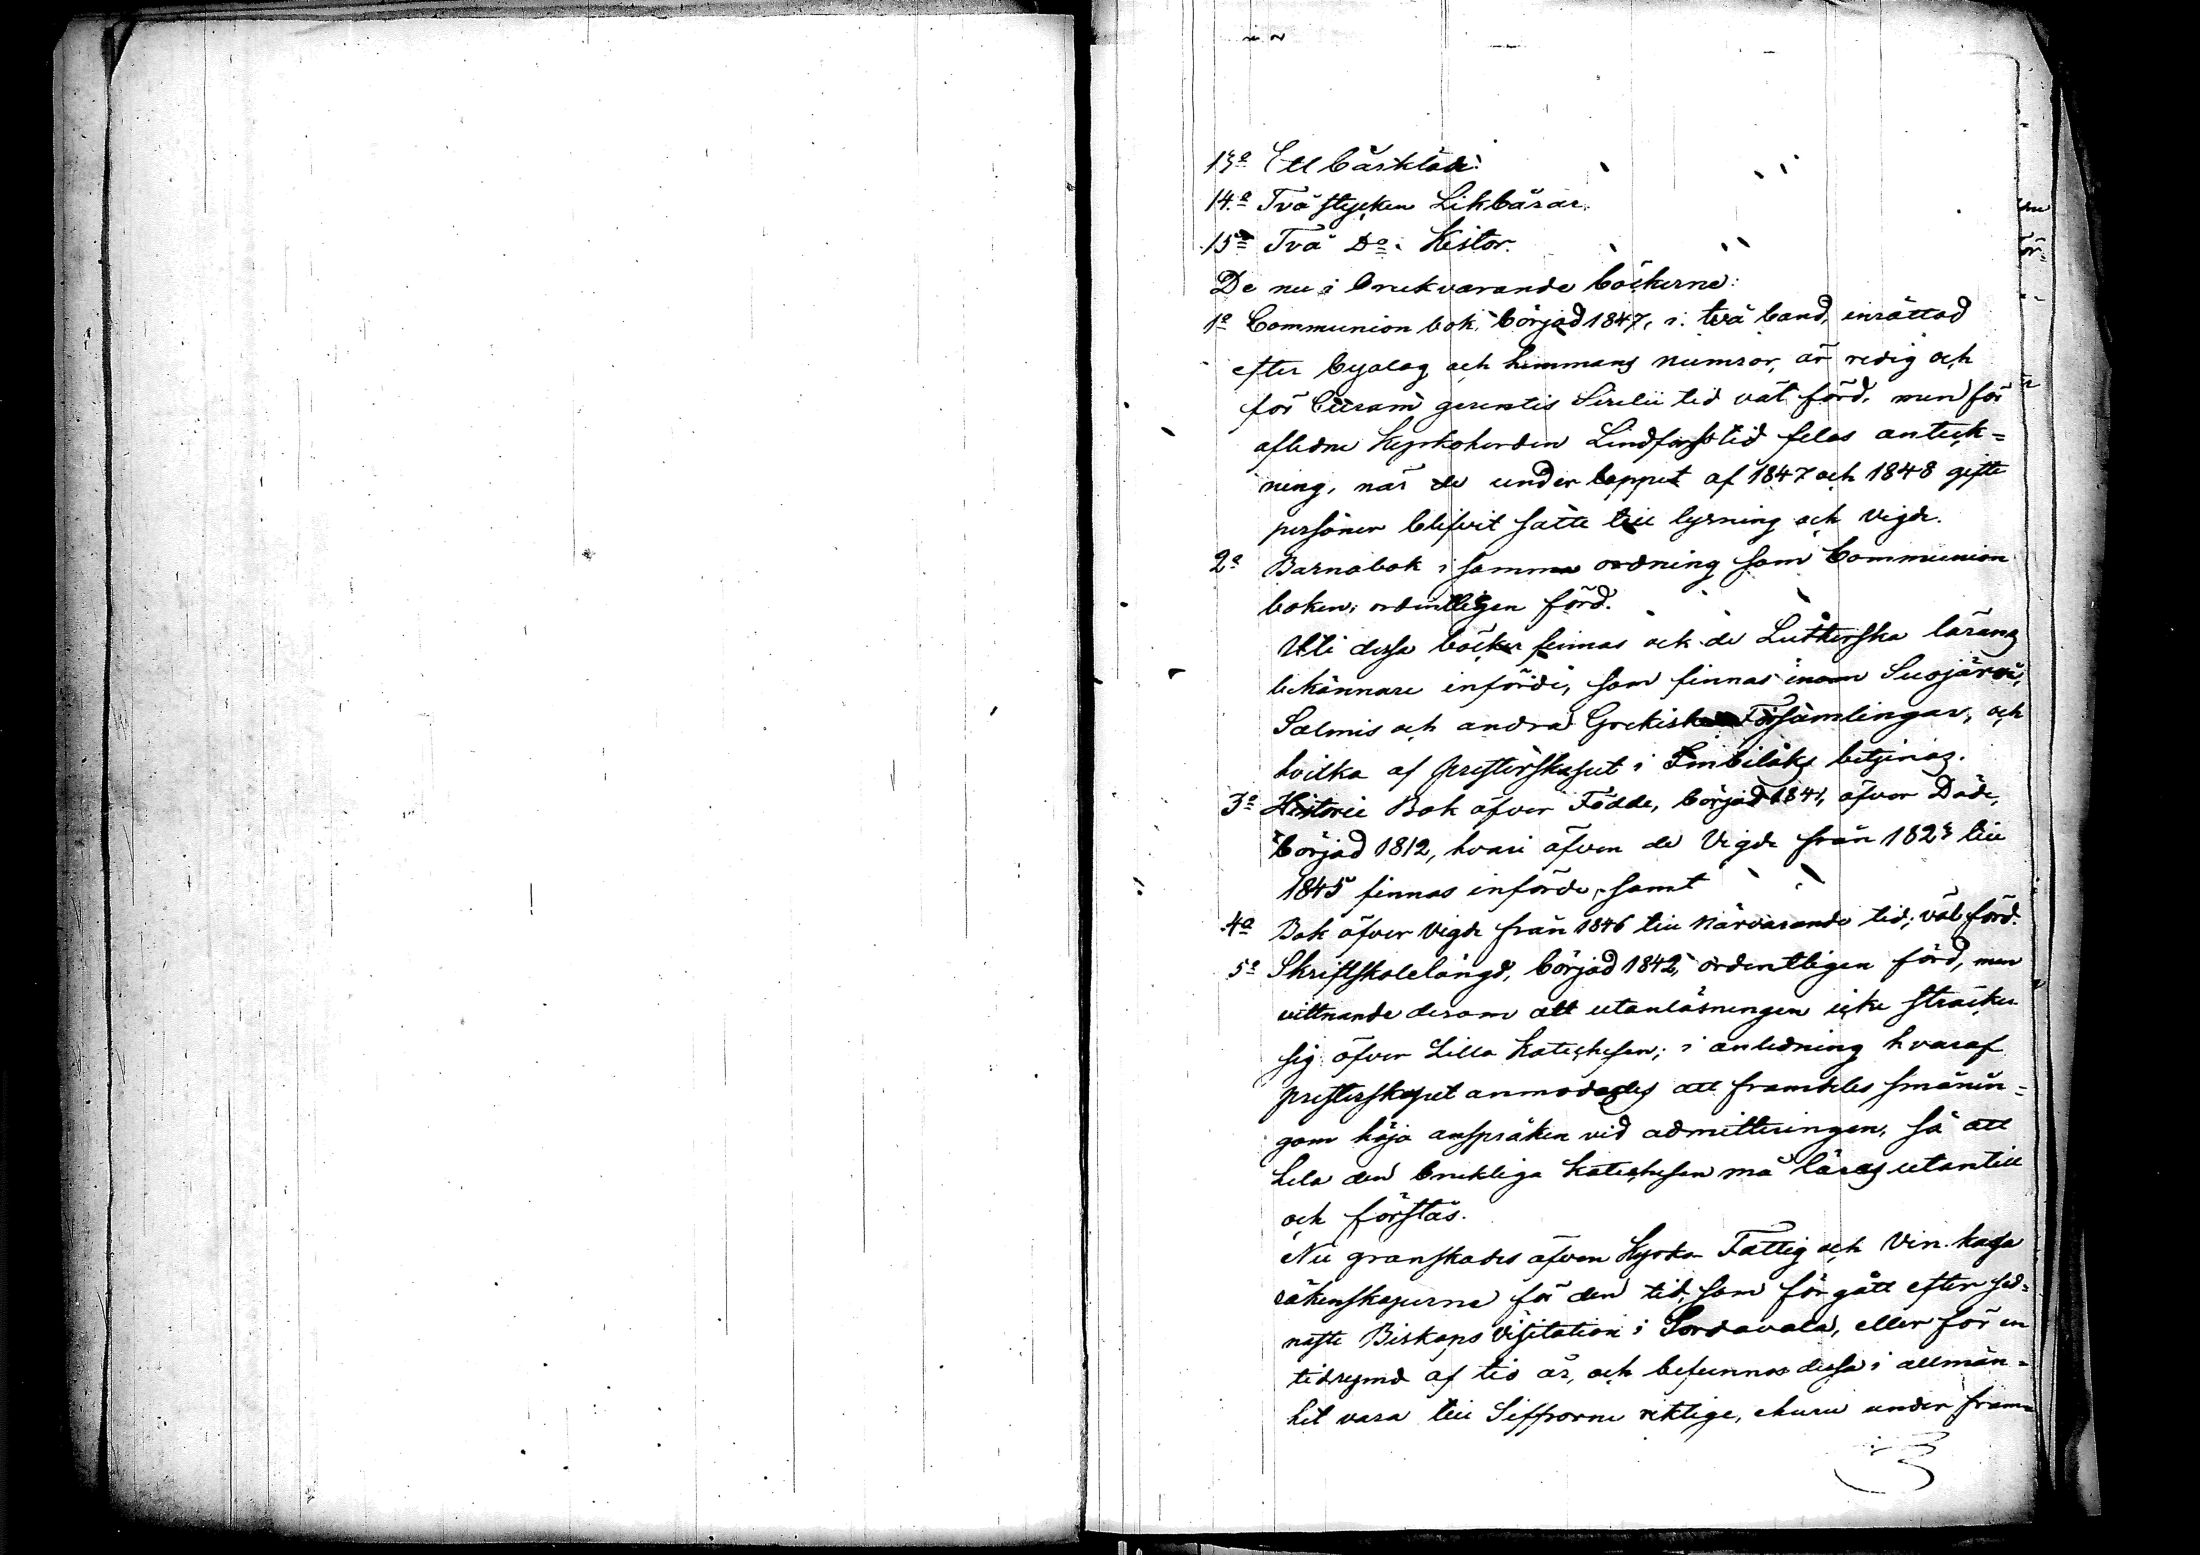 13º Ett bårkläde.
14.º Två stycken Likbårar.
15º Två Dº. Kistor.
De nu i brukvarande böckerne:
1º Communion bok, börjad 1847, i två band, inrättad
efter byalag och hemmans numror, är redig och
för Curam gerentis Sirelii tid väl förd, men för
aflidne Kyrkoherden Lindforss tid felas anteck=
ning, när de under loppet af 1847 och 1848 gifte
personer blifvit satte till lysning och vigde.
2º Barnabok i samma ordning som Communion
boken, ordentligen förd.
Uti dessa böcker finnas ock de Lutherska lärans
bekännare införde, som finnas inom Suojärvi,
Salmis och andra Grekiska Församlingar, och
hvilka af presterskapet i Imbilaks betjenas.
3º Historie Bok öfver Födde, börjad 1841, öfver Döde,
börjad 1812, hvari äfven de Vigde från 1823 till
1845 finnas införde, samt
4º Bok öfver Vigde från 1846 till närvarande tid; väl förd.
5º Skriftskolelängd, börjad 1842, ordentligen förd, men
vittnande derom att utanläsningen icke sträcker
sig öfver Lilla Katechesen; i anledning hvaraf
presterskapet anmodades att framdeles smånin=
gom höja anspråken vid admitteringen, så att
hela den brukliga Katechesen må läras utantill
och förstås.
Nu granskades äfven Kyrko- Fattig och Vin. kassa
räkenskaperne för den tid, som förgått efter sed=
naste Biskops Visitation i Sordavala, eller för en
tidrymd af tio år, och befunnos dessa i allmän=
het vara till Siffrorne riktige, ehuru under fram=